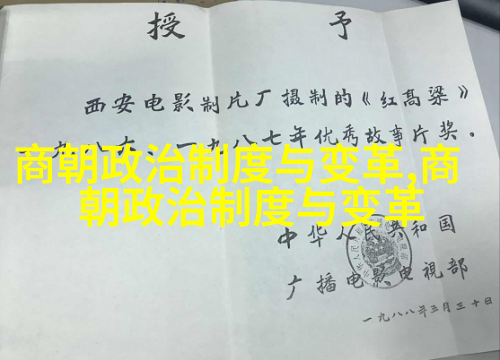 授予
西安电影制片厂摄制的《红高粱》
一九八六、一九八七年优秀故事片奖。
商朝政治制度与变革,商
朝政治制度与变革
中华人民共和国
广播电影电视部
一九八八年三月三十日